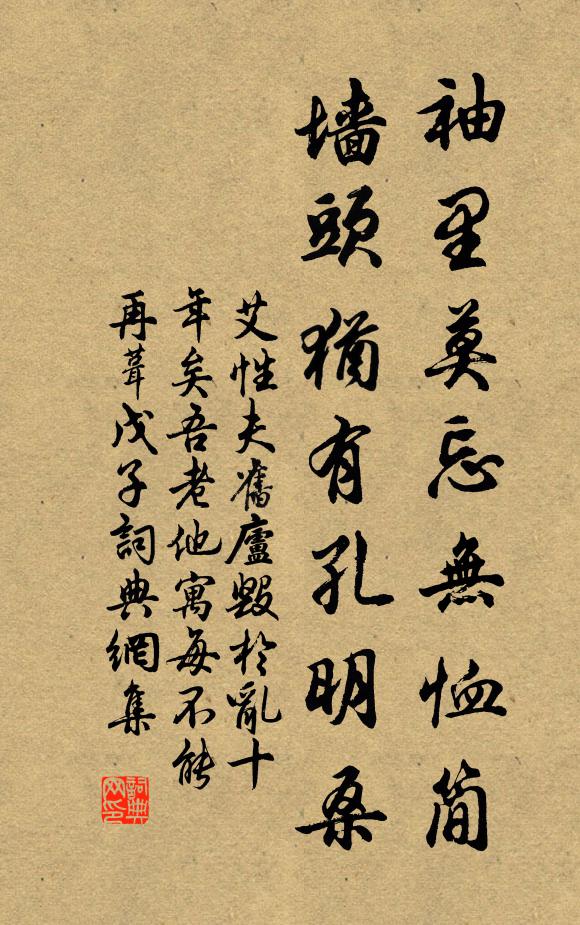 袖里莫忘無恤简
墙頭猶有孔明桑
艾性夫舊廬毀於亂十
年矣吾老他寓每不能
再葺戊子詞典網集
詞典網印